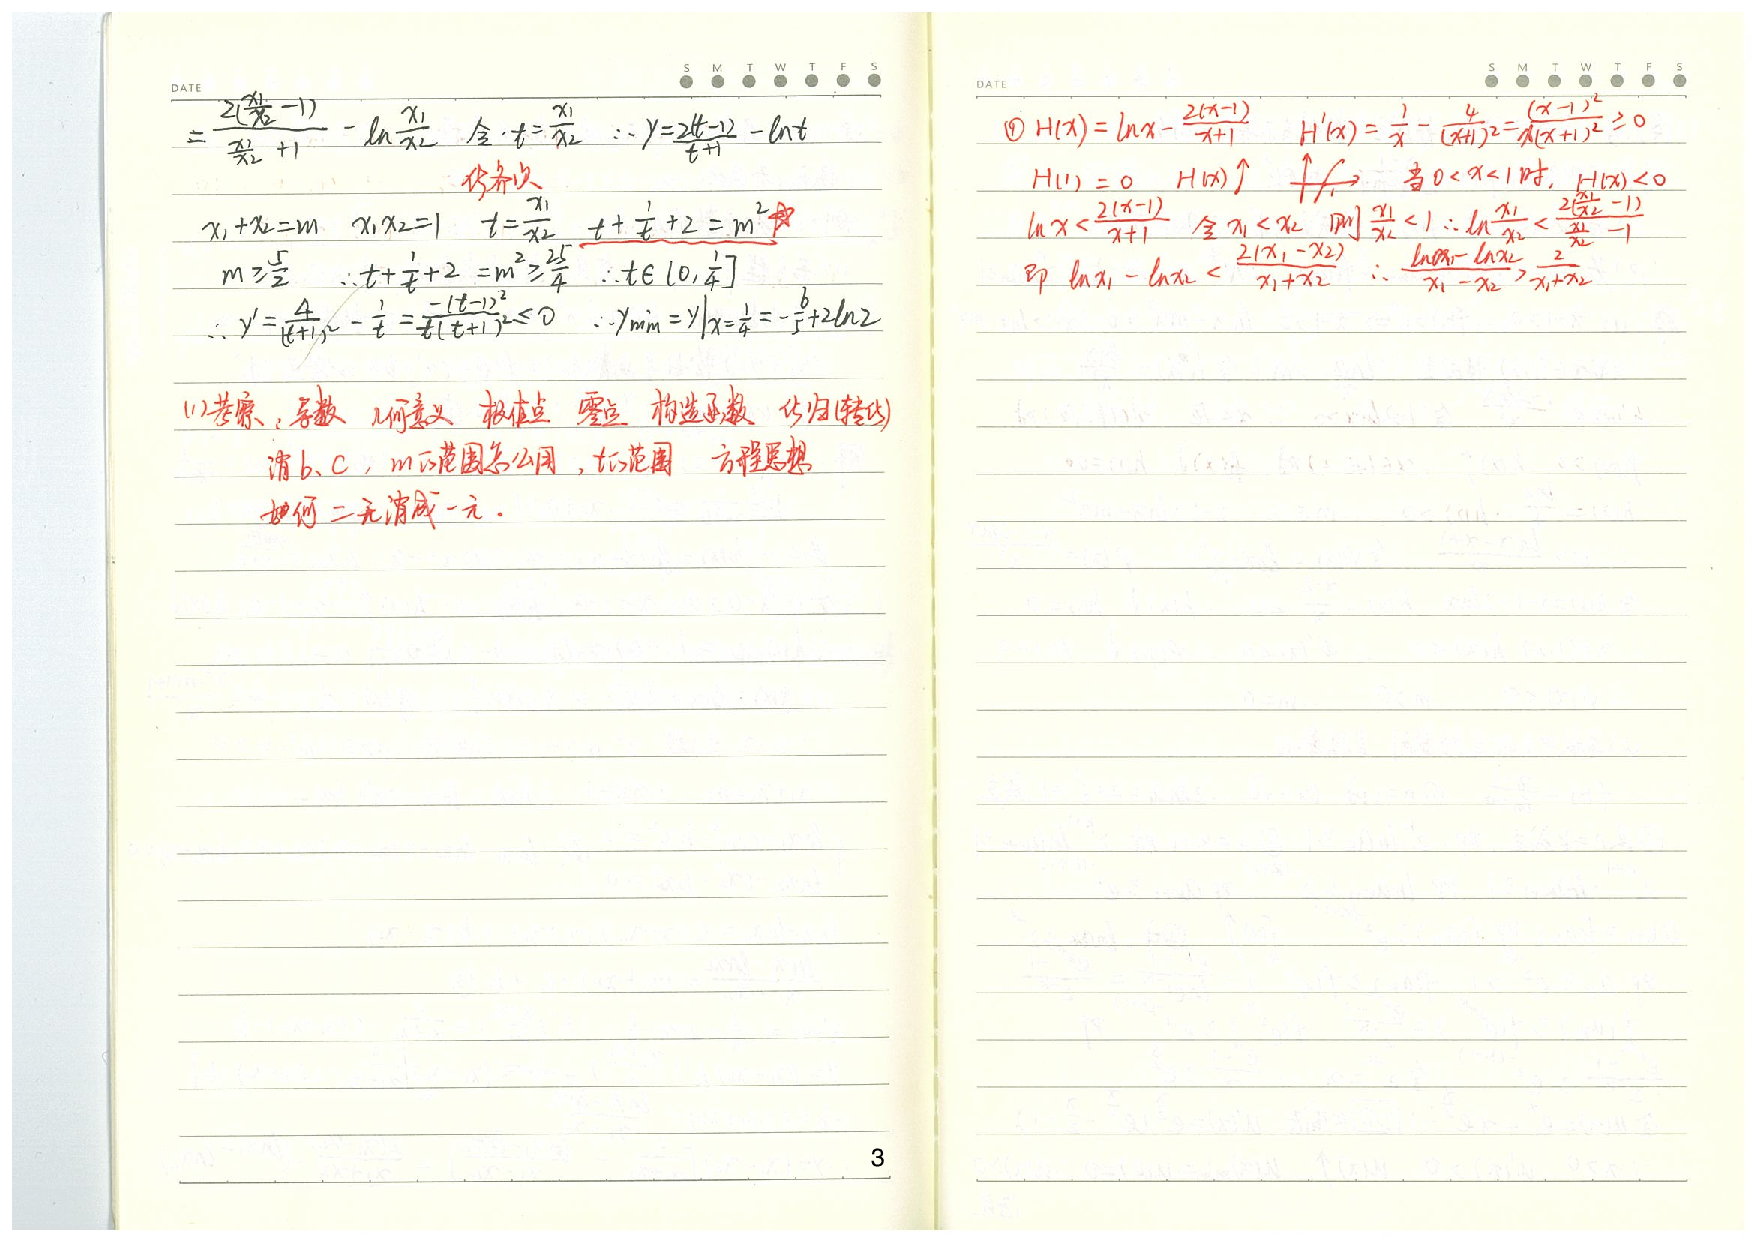 DATE S M T W T F S
= 2(x₁/x₂ -1)/(x₁/x₂ +1) - ln x₁/x₂ 令·t= x₁/x₂ ∴y= 2(t-1)/(t+1) - lnt
化齐次
x₁+x₂=m x₁x₂=1 t= x₁/x₂ t+ 1/t +2 = m² ☆
m≥ 5/2 ∴t+ 1/t +2 =m²≥ 25/4 ∴t∈(0, 1/4]
∴ y'= 4/(t+1)² - 1/t = -(t-1)²/t(t+1)² ≤0 ∴ymin = y|x= 1/4 = - 6/5 +2ln2
(1)考察:导数 几何意义 极值点 零点 构造函数 化归(转化)
消b、c, m的范围怎么用,t的范围 方程思想
如何二元消成一元.
3
DATE S M T W T F S
① H(x)= lnx- 2(x-1)/(x+1) H'(x)= 1/x - 4/(x+1)² = (x-1)²/x(x+1)² ≥0
H(1)=0 H(x)↑ 当0<x<1时, H(x)<0
lnx< 2(x-1)/(x+1) 令x₁<x₂ 则 x₁/x₂ <1 ∴ln x₁/x₂ < 2(x₁/x₂ -1)/(x₁/x₂ -1)
即 lnx₁-lnx₂ < 2(x₁-x₂)/(x₁+x₂) ∴ (lnx₁-lnx₂)/(x₁-x₂) > 2/(x₁+x₂)